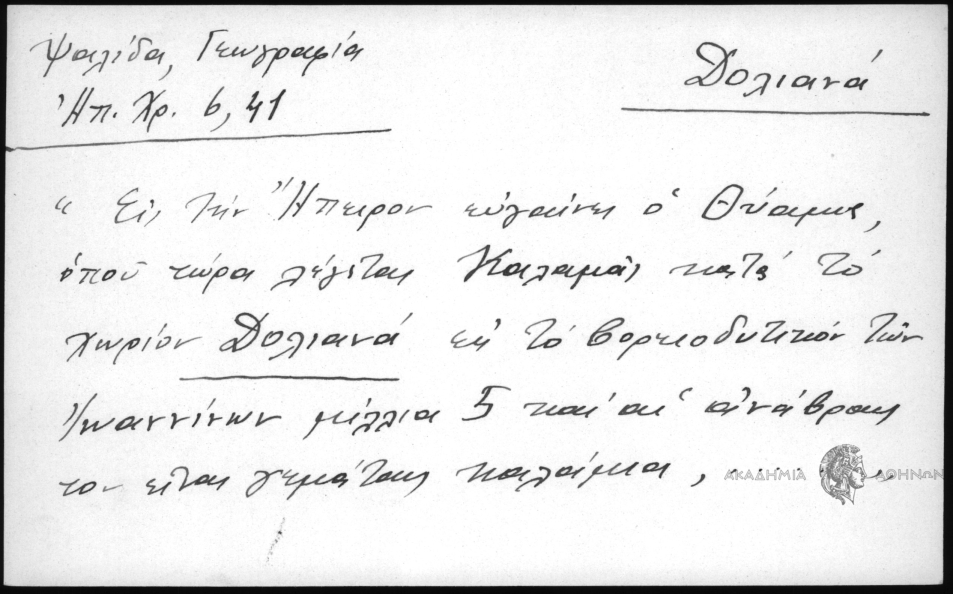 Ψαλίδα, Γεωγραφία
Ἠπ. Χρ. 6, 41
Δολιανά
“ Εἰς τὴν Ἤπειρον εὐγαίνει ὁ Θύαμις,
ὁποῦ τώρα λέγεται Καλαμᾶς κατὰ τὸ
χωρίον Δολιανά εἰς τὸ βορειοδυτικὸν τῶν
Ἰωαννίνων μίλλια 5 καὶ αἱ ἀνάβραις
του εἶται γεμάταις καλάμια, ......
ΑΚΑΔΗΜΙΑ ΑΘΗΝΩΝ